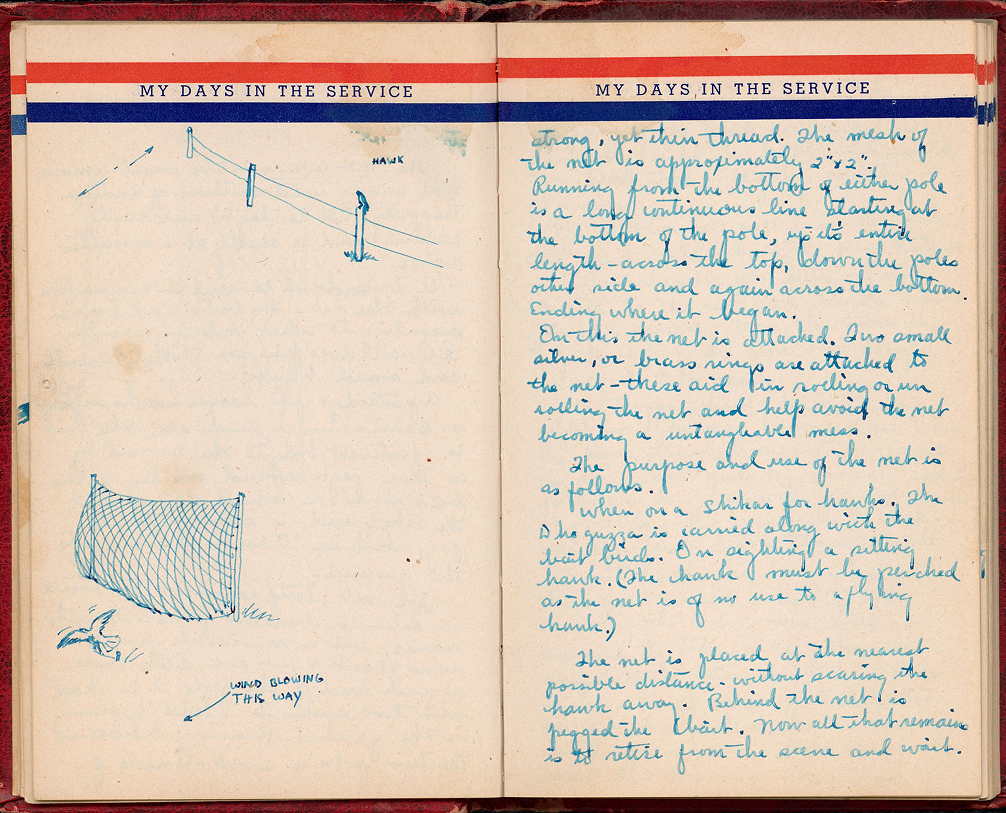 MY DAYS IN THE SERVICE
HAWK
WIND BLOWING
THIS WAY
MY DAYS IN THE SERVICE
strong, yet thin thread. The mesh of
the net is approximately 2"x2".
Running from the bottom of either pole
is a long continuous line starting at
the bottom of the pole, up its entire
length - across the top, down the poles
other side and again across the bottom.
Ending where it began.
On this the net is attached. Two small
silver, or brass rings are attached to
the net - these aid in rolling or un
rolling the net and help avoid the net
becoming a untangleable mess.
The purpose and use of the net is
as follows.
When on a Shikar for hawks. The
Dho guzza is carried along with the
bait birds. On sighting a sitting
hawk. (The hawk must be perched
as the net is of no use to a flying
hawk.)
The net is placed at the nearest
possible distance - without scaring the
hawk away. Behind the net is
pegged the bait. Now all that remains
is to retire from the scene and wait.